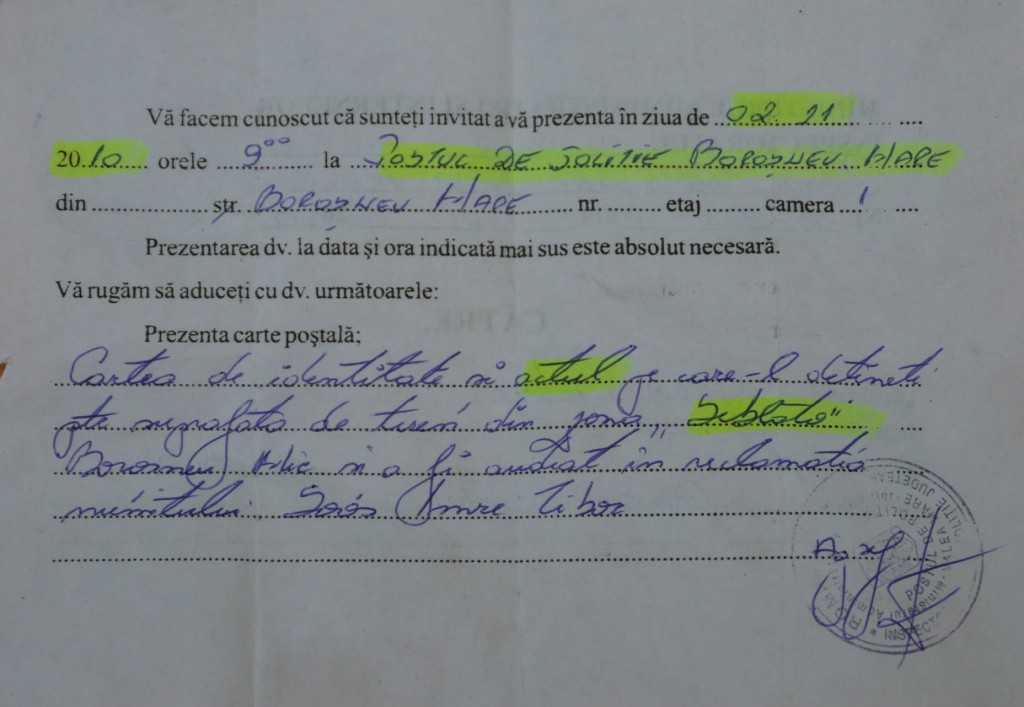 Vă facem cunoscut că sunteți invitat a vă prezenta în ziua de 02. 11
2010 orele 9⁰⁰ la Postul de Poliție Boroșneu Mare
din str. Boroșneu Mare nr. etaj camera 1
Prezentarea dv. la data și ora indicată mai sus este absolut necesară.
Vă rugăm să aduceți cu dv. următoarele:
Prezenta carte poștală;
Cartea de identitate și actul pe care-l dețineți
pe suprafața de teren din zona "
Boroșneu Mic și a fi audiat în reclamația
numitului Soós Imre Tibor